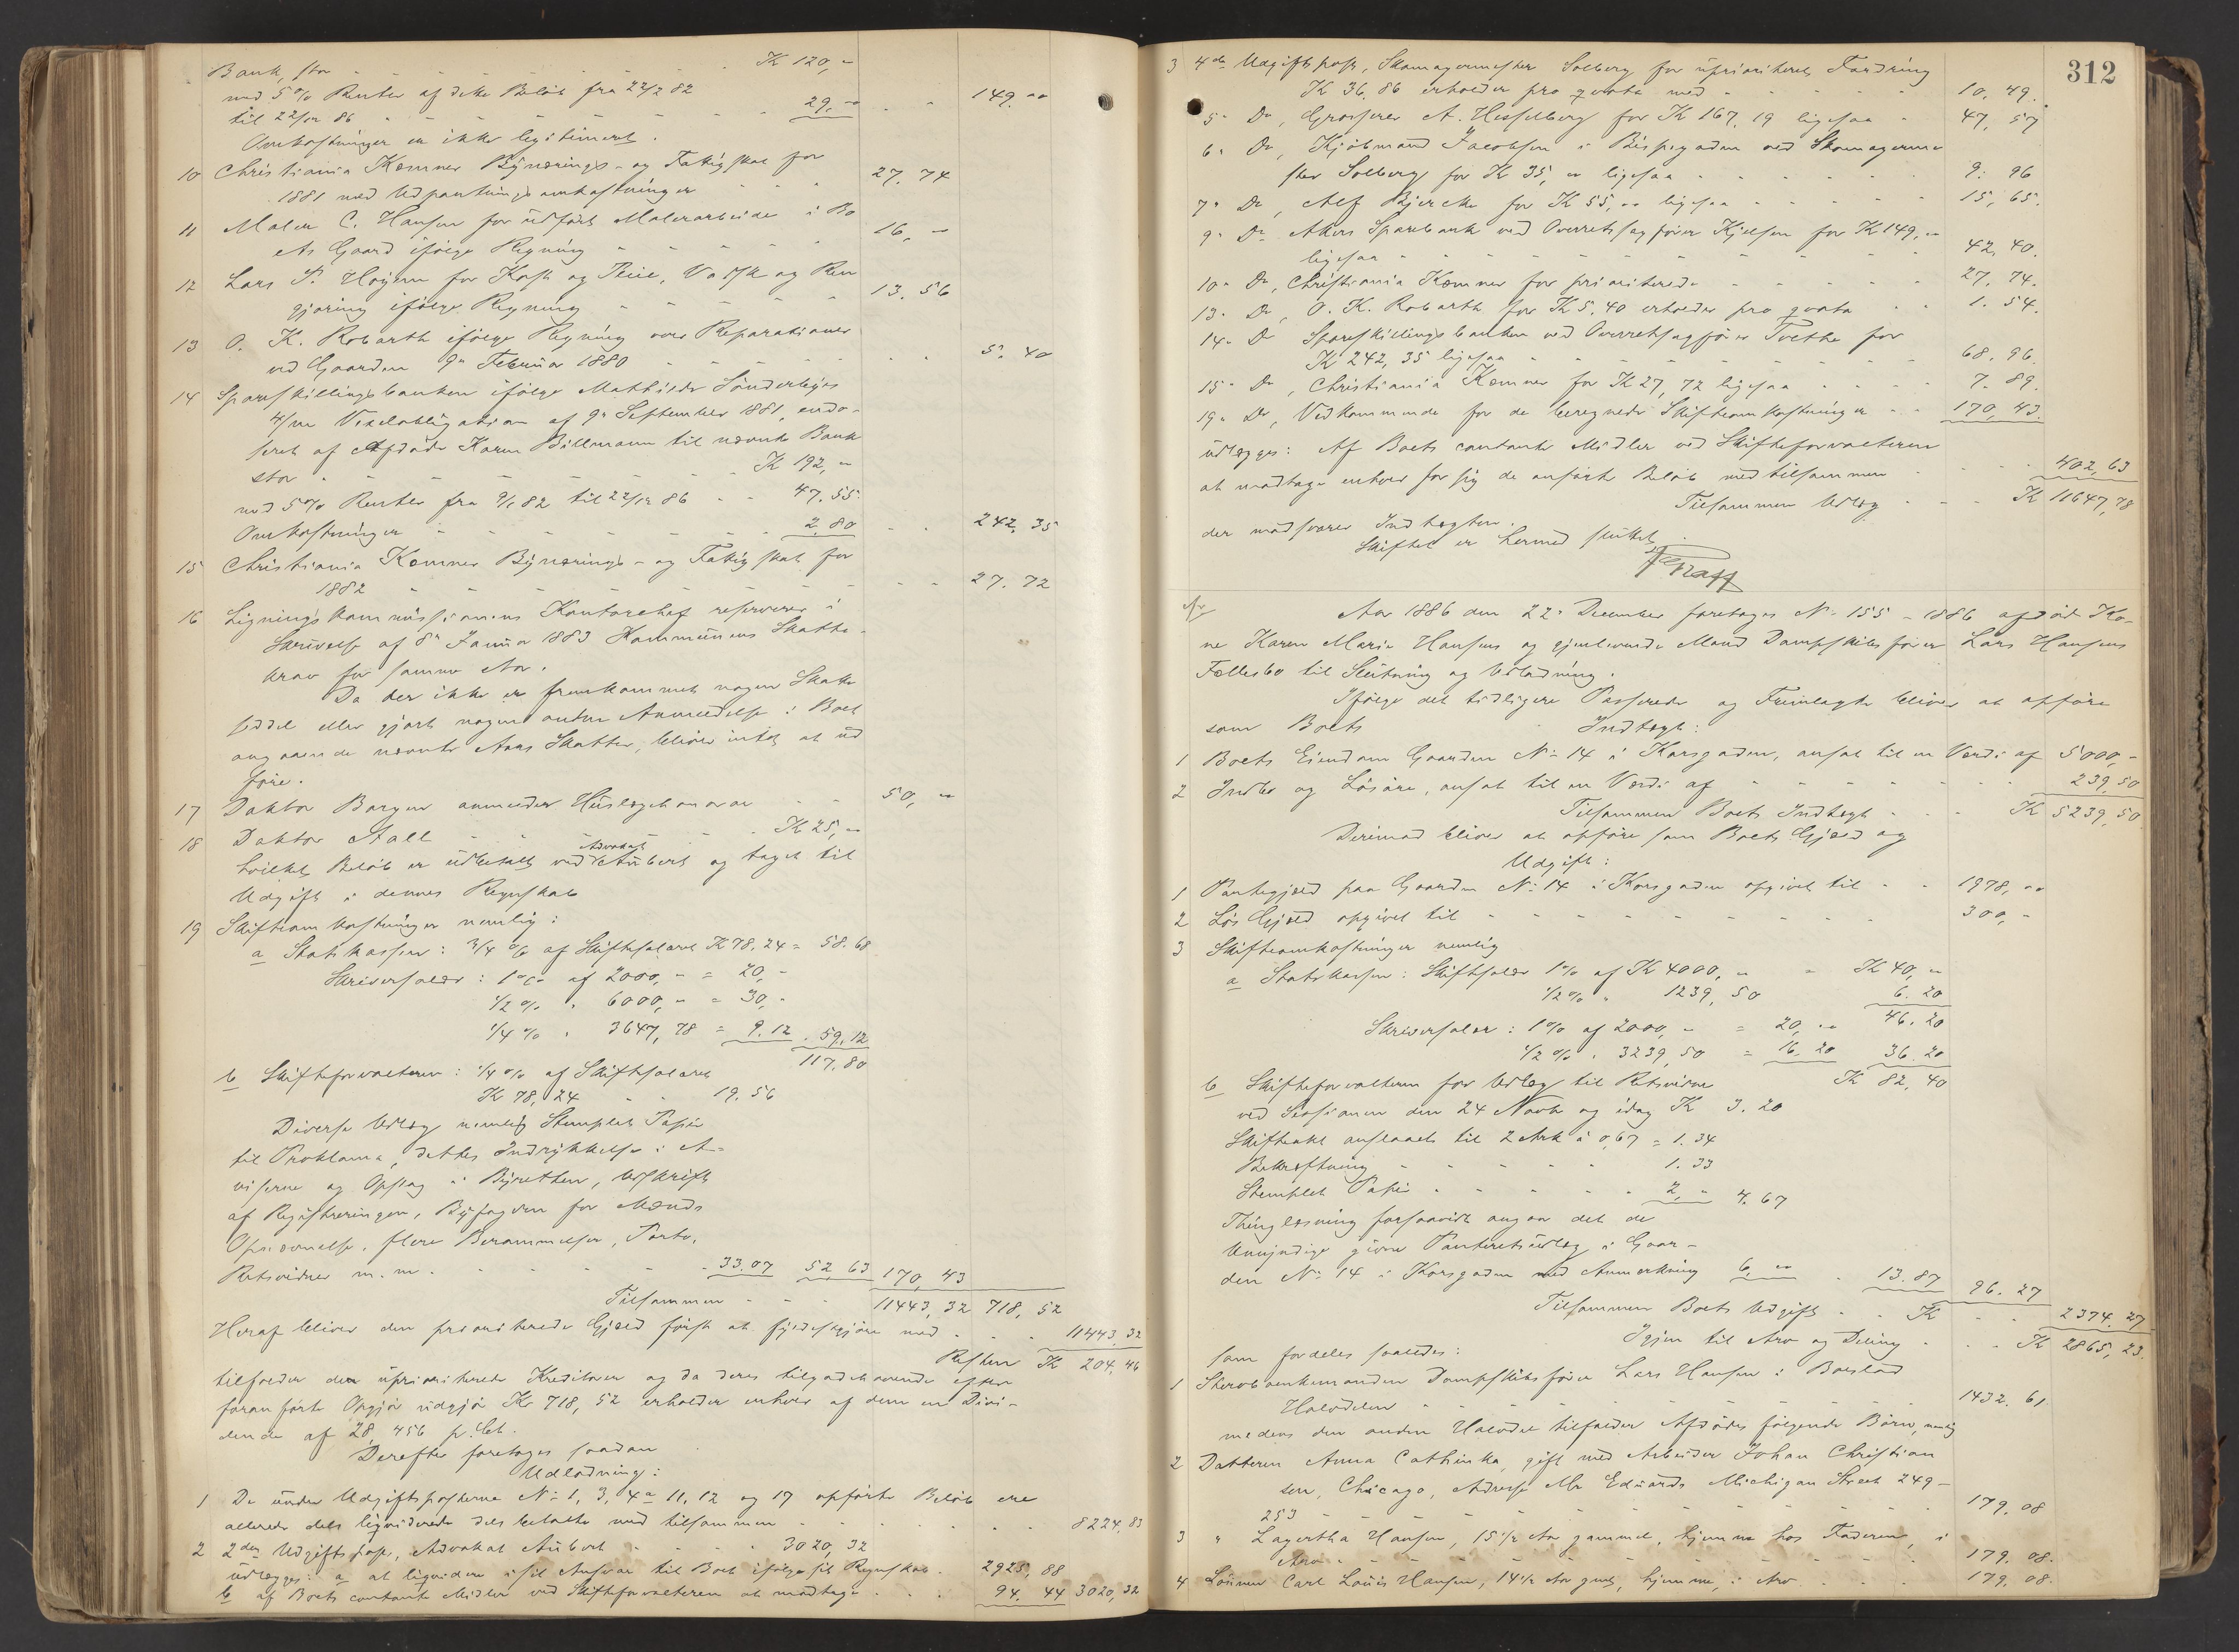 Bank, stor K 120,"
med 5% Renter af dette Beløb fra 22/2 82
til 22/12 86 29."" 149.""
Omkostninger er ikke legitimeret.
10 Christiania Kæmner Bynærings- og Fattigskat for
1881 med Udpantningsomkostninger 27.74
11 Maler C. Hansen for udført Malerarbeide i Bo
ets Gaard ifølge Regning 16,"
12 Lars P. Høyem for Kost og Pleie, Vask og Ren
gjøring ifølge Regning 13.56
13 O. K. Robarth ifølge Regning over Reparationer
ved Gaarden 9de Februar 1880 5.40
14 Spareskillingsbanken ifølge Mathilde Sønderbyes
4/m Vexelobligation af 9de September 1881, endo-
seret af Afdøde Karen Billmann til nævnte Bank
stor K 192,"
med 5% Renter fra 9/1 82 til 22/12 86 47.55
Omkostninger 2.80 242.35
15 Christiania Kæmner Bynærings- og Fattigskat for
1882 27.72
16 Ligningskommissionens Kontorchef reserverer i
Skrivelse af 8de Januar 1883 Kommunens Skatte-
krav for samme Aar.
Da der ikke er fremkommet nogen Skatte
seddel eller gjort nogen anden Anmeldelse i Boet
angaaende nævnte Aars Skatter, bliver intet at ud
føre.
17 Doktor Borgen anmelder Huslægehonorar 50,"
18 Doktor Aall K 25,"
hvilket Beløb er udbetalt ved Advokat Aubert og taget til
Udgift i dennes Regnskab
19 Skifteomkostninger nemlig:
a Statskassen: 3/4 % af Skiftesalaret K 78.24 = 58.68
Skriversalær: 1% af 2000,- = 20,-
1/2 % " 6000,- = 30,-
1/4 % " 3647,78 = 9.12 59.12
117.80
b Skifteforvalteren: 1/4 % af Skiftesalaret
K 78,24 19.56
Diverse Udlæg nemlig Stemplet Papir
til Proklama, dettes Indrykkelse i A-
viserne og Opslag i Byretten, Udskrift
af Registreringen, Byfogden for Mænds
Opnævnelse, flere Berammelser, Porto,
Retsvidner m.m. 33.07 52.63 170,43
Tilsammen 11443,32 718,52
Heraf bliver den prioriterede Gjæld først at fyldestgjøre med 11443.32
Resten K 204,46
tilfalder de uprioriterede Kreditorer og da deres tilgodehavende efter
foranførte Opgjør udgjør Kr 718,52 erholder enhver af dem en Divi-
dende af 28,456 p.Ct.
Derefter foretages saadan
Udlodning:
1 De under Udgiftsposterne No 1, 3, 4a 11, 12 og 17 opførte Beløb ere
allerede dels ligviderede dels betalte med tilsammen 8224,83
2 2den Udgiftspost, Advokat Aubert 3020,32
udlægges: a at ligvidere i sit Ansvar til Boet ifølge sit Regnskab 2925,88
b af Boets contante Midler ved Skifteforvalteren at modtage 94.44 3020,32
312
3 4de Udgiftspost, Skomagermester Solberg for uprioriteret Fordring
K 36.86 erholder pro qvota med 10.49.
5te Do, Grosserer A. Hesselberg for K 167.19 ligesaa 47,57
6te Do, Kjøbmand Jacobsen i Bispegaden ved Skomagerme
ster Solberg for K 35,"" ligesaa 9.96
7de Do, Alf Bjercke for K 55,"" ligesaa 15,65.
9de Do Akers Sparebank ved Overretssagfører Kjelsen for K 149,""
ligesaa 42,40.
10de Do, Christiania Kæmner for prioriterede 27.74.
13de Do, O. K. Robarth for K 5,40 erholder pro qvota 1.54.
14de Do Spareskillingsbanken ved Overretssagfører Tvethe for
K 242,35 ligesaa 68.96.
15de Do, Christiania Kæmner for K 27,72 ligesaa 7.89.
19de Do, Vedkommende for de beregnede Skifteomkostninger 170,43.
udlægges: Af Boets contante Midler ved Skifteforvalteren
at modtage enhver for sig de anførte Beløb med tilsammen 402,63
Tilsammen Udlæg K 11647,78
der modsvarer Indtægten.
Skiftet er hermed sluttet.
Graff
Aar 1886 den 22de December foretages No 155 - 1886 afdød Ko-
ne Karen Marie Hansens og gjenlevende Mand Dampskibsfører Lars Hansens
Fællesbo til Slutning og Udlodning.
Ifølge det tidligere Passerede og Fremlagte bliver at opføre
som Boets Indtægt:
1 Boets Eiendom Gaarden No 14 i Korsgaden, ansat til en Værdi af 5000,-
2 Indbo og Løsøre, ansat til en Værdi af 239,50
Tilsammen Boets Indtægt K 5239,50
Derimod bliver at opføre som Boets Gjæld og
Udgift:
1 Pantegjæld paa Gaarden No 14 i Korsgaden opgivet til 1978,""
2 Løs Gjæld opgivet til 300,-
3 Skifteomkostninger nemlig
a Statskassen: Skiftesalær 1% af K 4000," = K 40,"
1/2 % " 1239,50 6.20
46.20
Skriversalær: 1% af 2000,- = 20,""
1/2 % " 3239,50 = 16.20 36.20
K 82,40
b Skifteforvalteren for Udlæg til Retsvidner
ved Sessionen den 24 Novbr og idag K 3.20
Skifteakt anslaaet til 2 Ark à 0,67 = 1.34
Bekræftning 1.33
Stemplet Papir 2,- 4.67
Thinglæsning forsaavidt angaar det de
Umyndige givne Panteretsudlæg i Gaar-
den No 14 i Korsgaden med Anmerkning 6,"" 13.87 96.27
Tilsammen Boets Udgift K 2374.27
Igjen til Arv og Deling K 2865,23.
som fordeles saaledes:
1 Stervboenkemanden Dampskibsfører Lars Hansen i Boeslod
Halvdelen 1432.61
medens den anden Halvdel tilfalder Afdødes følgende Børn, nemlig
2 Datteren Anna Cathinka, gift med Arbeider Johan Christian
sen, Chicago, Adresse Mr Eduards Michigan Street 249-
253 179.08
3 " Lagertha Hansen, 15 1/2 Aar gammel, hjemme hos Faderen, i
Arv 179.08.
4 Sønnen Carl Louis Hansen, 14 1/2 Aar gml, hjemme, i Arv 179.08.